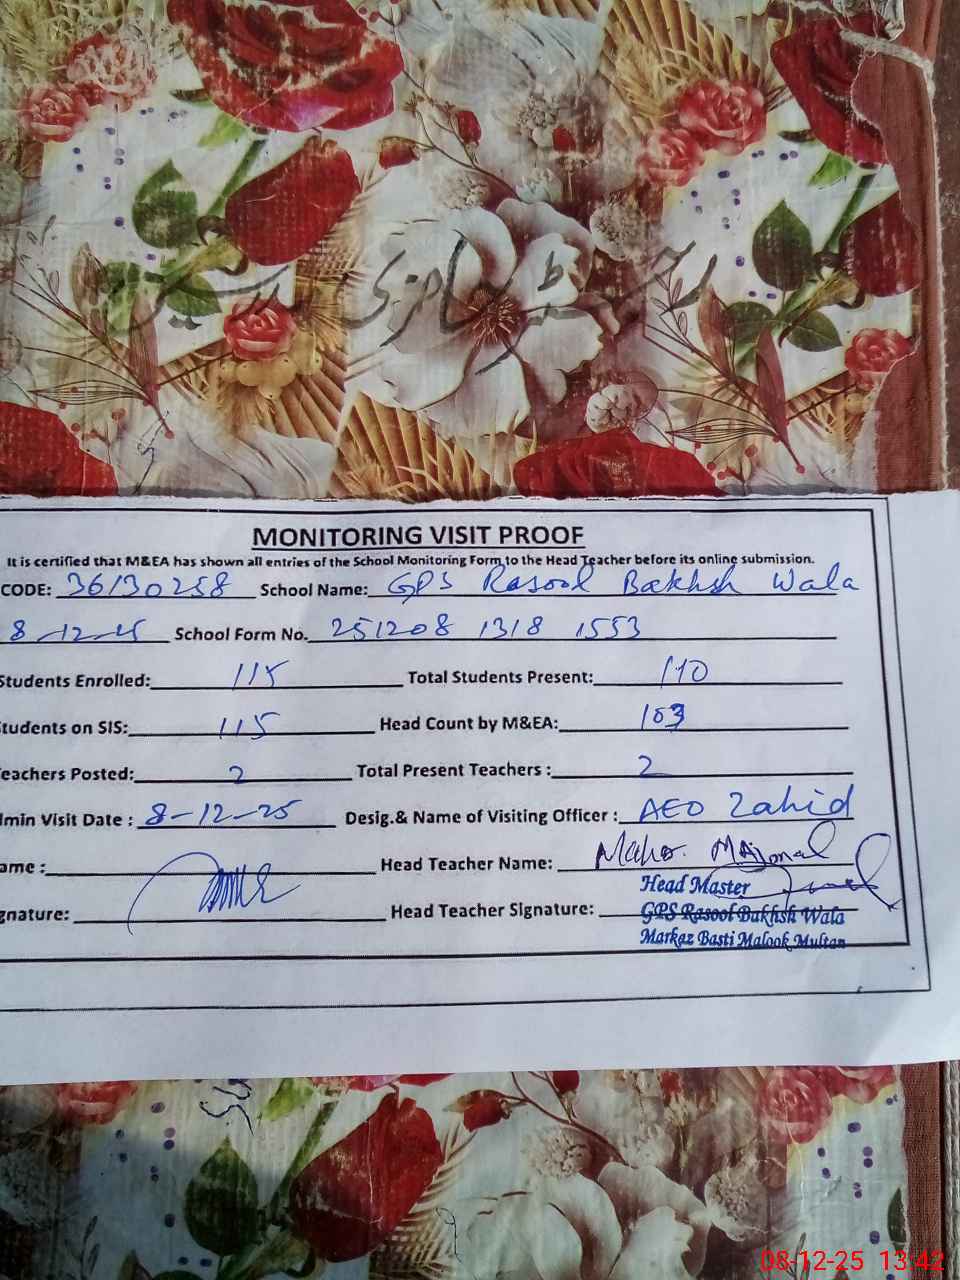 رجسٹر حاضری مدرسین
MONITORING VISIT PROOF
It is certified that M&EA has shown all entries of the School Monitoring Form to the Head Teacher before its online submission.
CODE: 36130258 School Name: GPS Rasool Bakhsh Wala
8-12-25 School Form No. 251208 1318 1553
Students Enrolled: 115 Total Students Present: 110
tudents on SIS: 115 Head Count by M&EA: 103
eachers Posted: 2 Total Present Teachers : 2
dmin Visit Date : 8-12-25 Desig.& Name of Visiting Officer : AEO Zahid
ame : Head Teacher Name:
gnature: Head Teacher Signature:
Head Master
GPS Rasool Bukhsh Wala
Markaz Basti Malook Multan
08-12-25 13:42